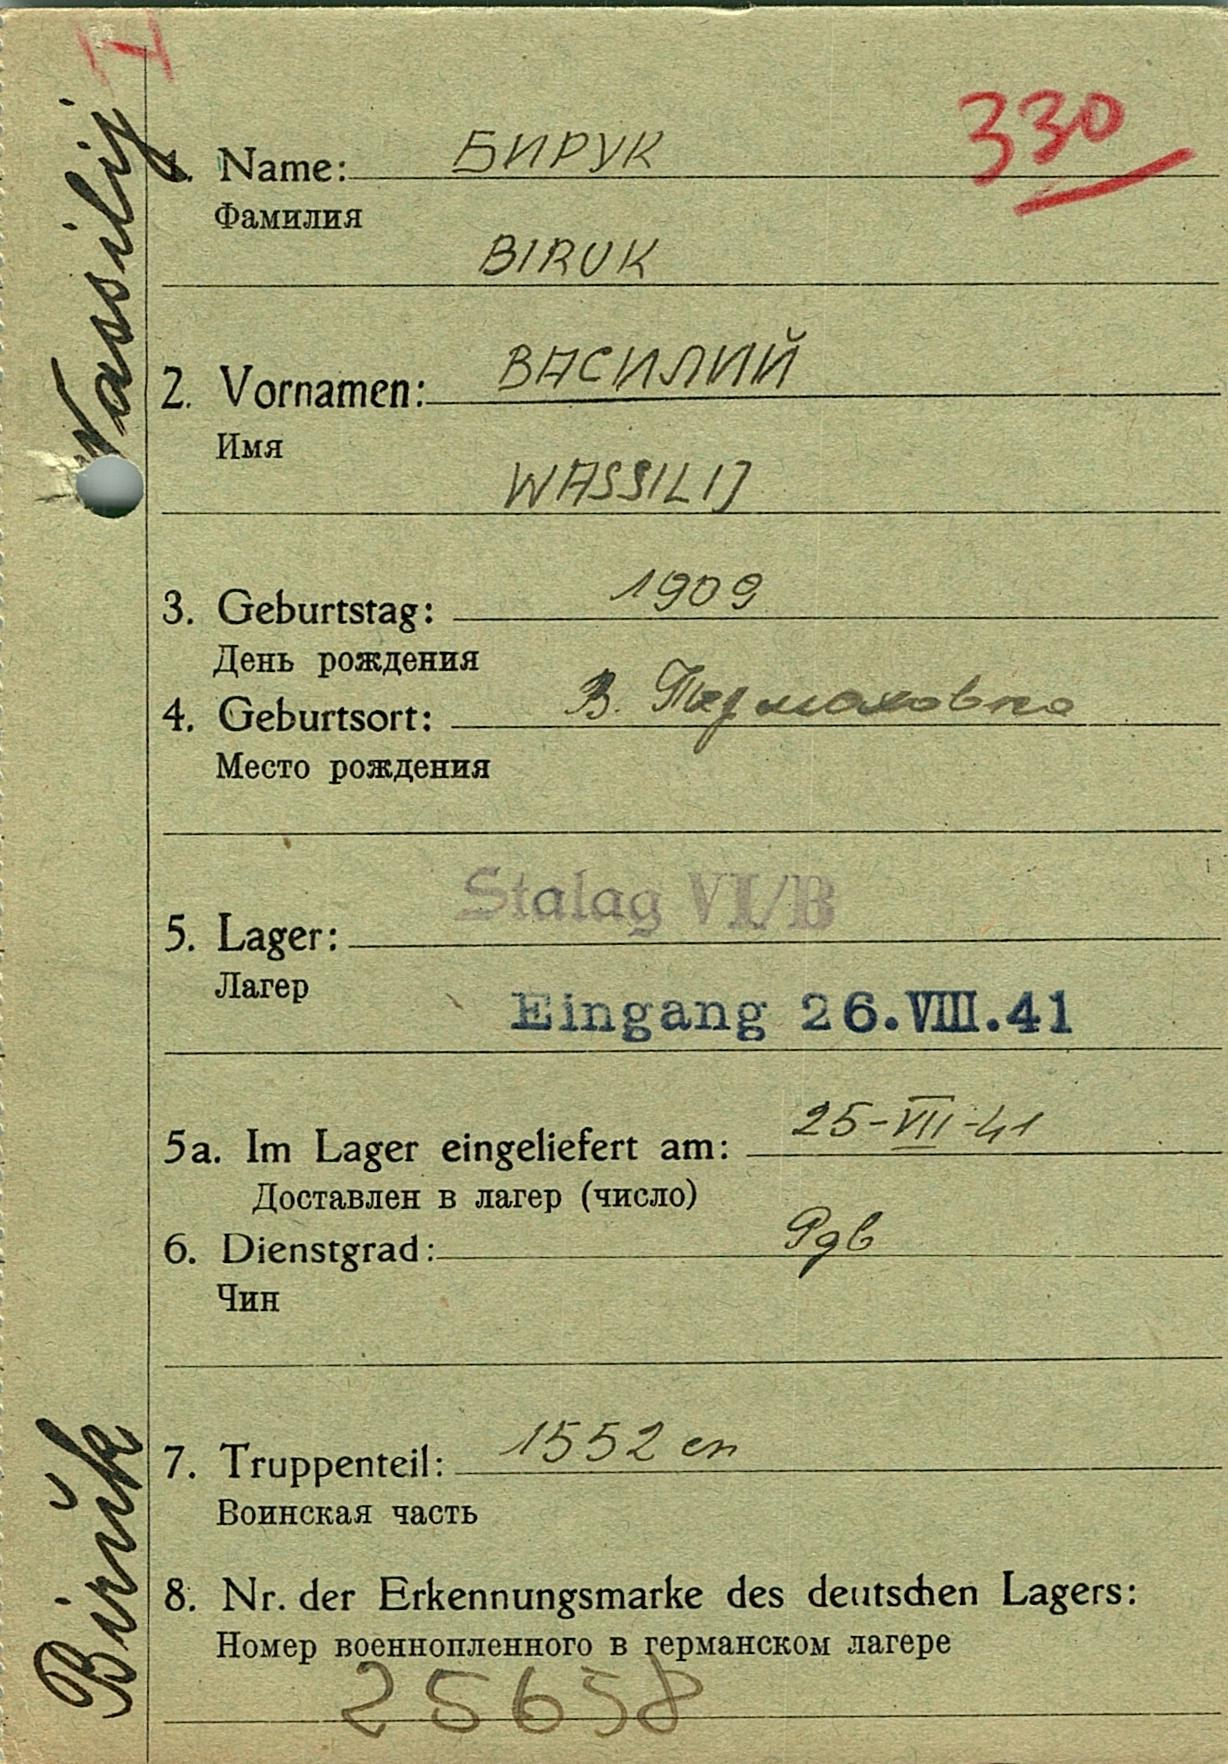 330
1. Name: БИРУК
Фамилия
BIRUK
2. Vornamen: ВАСИЛИЙ
Имя
WASSILIJ
3. Geburtstag: 1909
День рождения
4. Geburtsort: В.
Место рождения
Stalag VI/B
5. Lager:
Лагер
Eingang 26.VIII.41
5a. Im Lager eingeliefert am: 25-VII-41
Доставлен в лагер (число)
6. Dienstgrad:
Чин
7. Truppenteil: 1552 сп
Воинская часть
8. Nr. der Erkennungsmarke des deutschen Lagers:
Номер военнопленного в германском лагере
25658
Biruk Wassilij